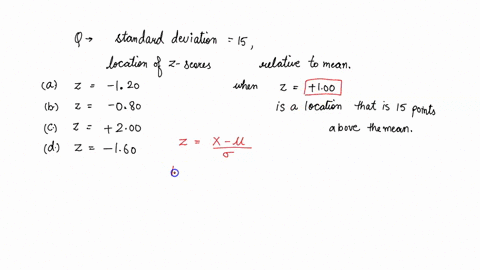 Q → standard deviation = 15,
location of z-scores relative to mean.
(a) z = -1.20 when z = +1.00
(b) z = -0.80 is a location that is 15 points
(c) z = +2.00 above the mean.
(d) z = -1.60 z = X - μ / σ